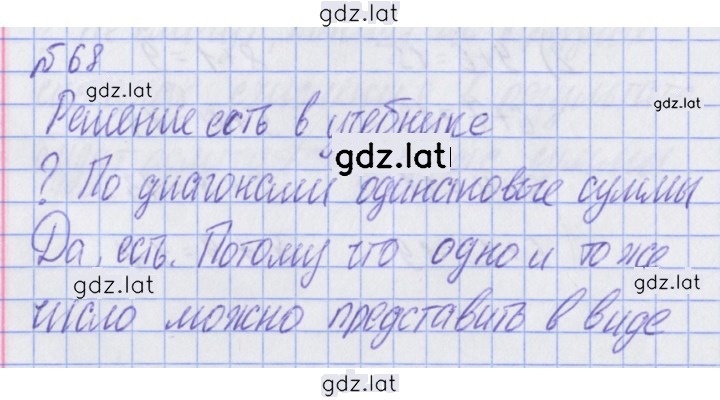 gdz.lat
№68
gdz.lat
gdz.lat
Решение есть в учебнике
gdz.lat
? По диагоналий одинаковые суммы
Да, есть. Потому что одно и то же
gdz.lat
gdz.lat
число можно представить в виде
gdz.lat